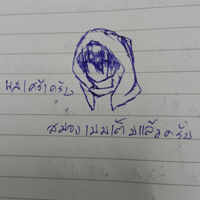 ผมเศร้าครับ
สมองผมเต็มแล้วครับ